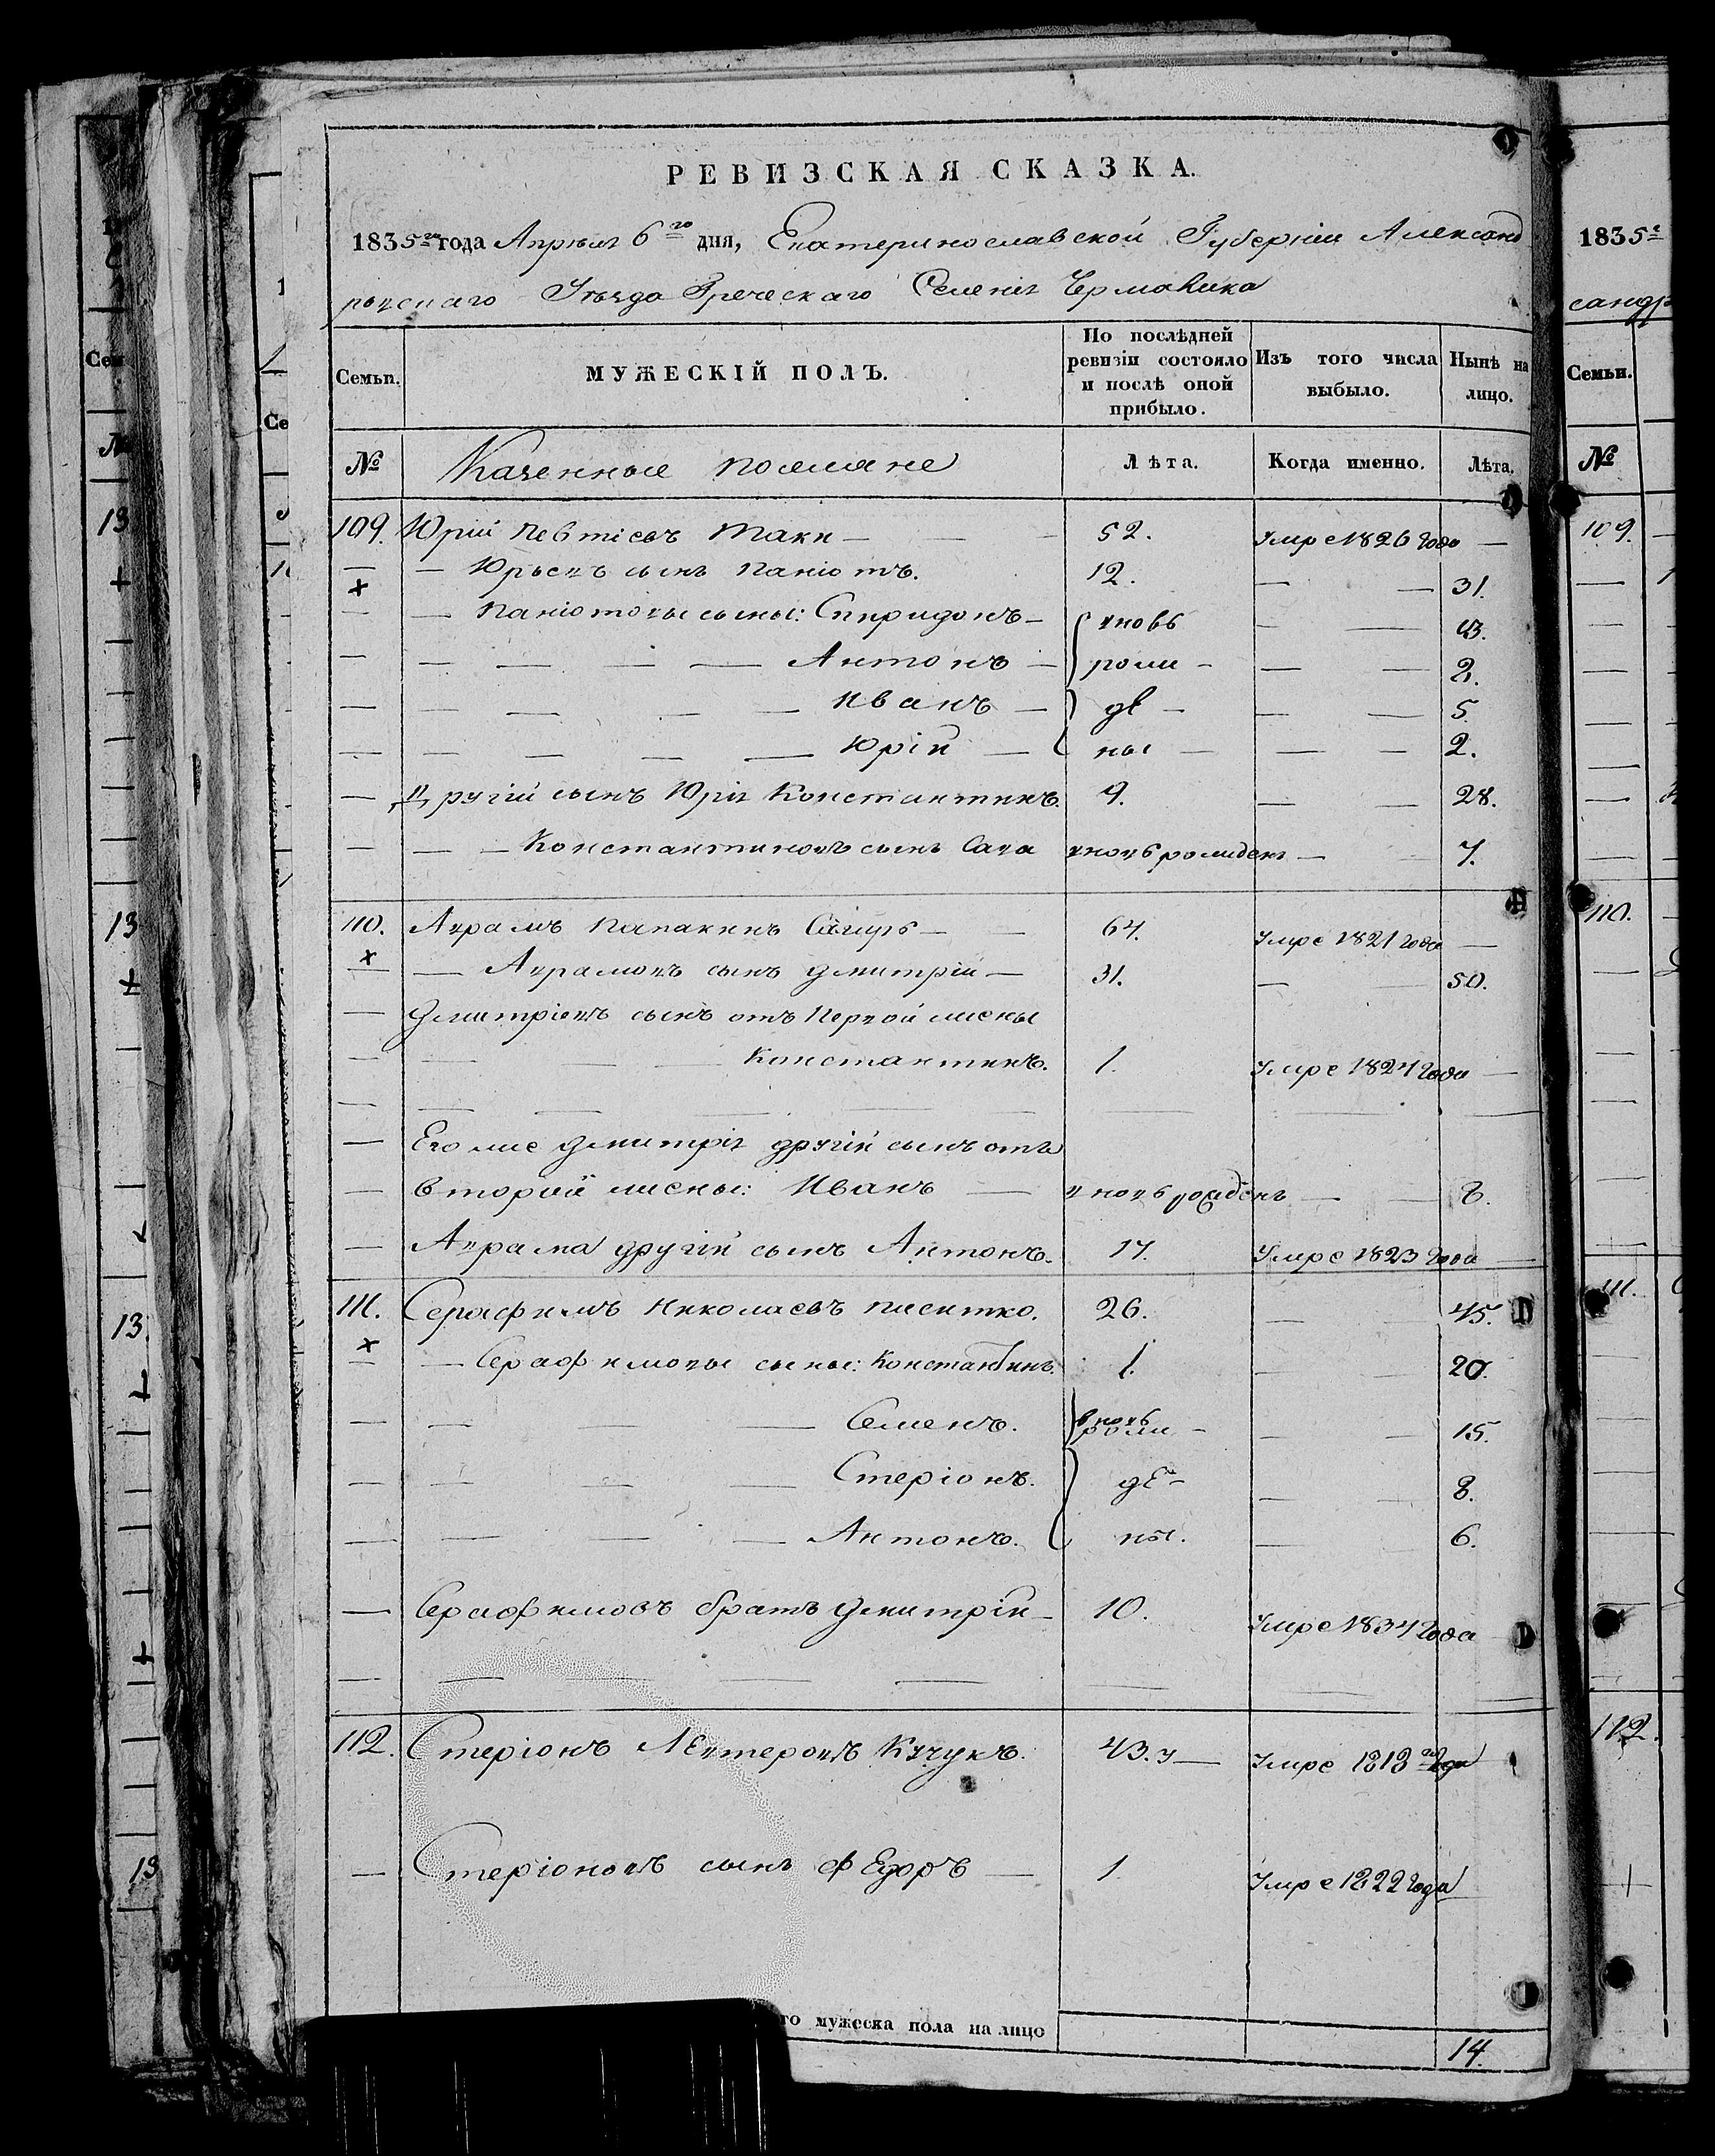 РЕВИЗСКАЯ СКАЗКА.
1835го года Апреля 6го дня, Екатеринославской Губерніи Александ
ровскаго Уезда Греческаго Селенія Чермалика
Семьи.
МУЖЕСКІЙ ПОЛЪ.
По послѣдней ревизіи состояло и послѣ оной прибыло.
Изъ того числа выбыло.
Нынѣ на лицо.
№ Казенные поселяне Лѣта. Когда именно. Лѣта.
109. Юрій Таки — 52. Умре 1826 года —
— Юрьевъ сынъ Паніотъ. 12. — — 31.
— Паніотовы сыны: Спиридонъ — вновь — —
— — — — — Антонъ — рожд — — — 2.
— — — — — Иванъ — де — — — 5
— — — — — Юрій — ны — — — 2.
— Другій сынъ Юрія Константинъ. 9. — — 28.
— — — Константиновъ сынъ Сава вновь рожденъ — — 7.
110. Аврамъ — — 64. Умре 1821 года —
— — Аврамовъ сынъ Дмитрій — 31. — — 50.
— Дмитріевъ сынъ отъ Первой жены
— — — — Константинъ. 1. Умре 1824 года —
— Его же Дмитрія другій сынъ отъ
— второй жены: Иванъ — вновь рожденъ — — 8.
— Аврама другій сынъ Антонъ. 17. Умре 1823 года —
111. Серафимъ Николаевъ 26. — — 45.
— — Серафимовы сыны: Константинъ. 1. — — 20.
— — — — Семенъ. вновь рожд — — — 15.
— — — — Стеріонъ. де — — — 8.
— — — — Антонъ. ны. — — 6.
— Серафимовъ братъ Дмитрій — 10. Умре 1834 года
112. Стеріонъ Левтеровъ Кучукъ. 43. — Умре 1818 года
— Стеріоновъ сынъ Федоръ — 1. Умре 1822 года
го мужеска пола на лицо 14.
1835
сандр
Семьи.
№
109.
110.
111.
112.